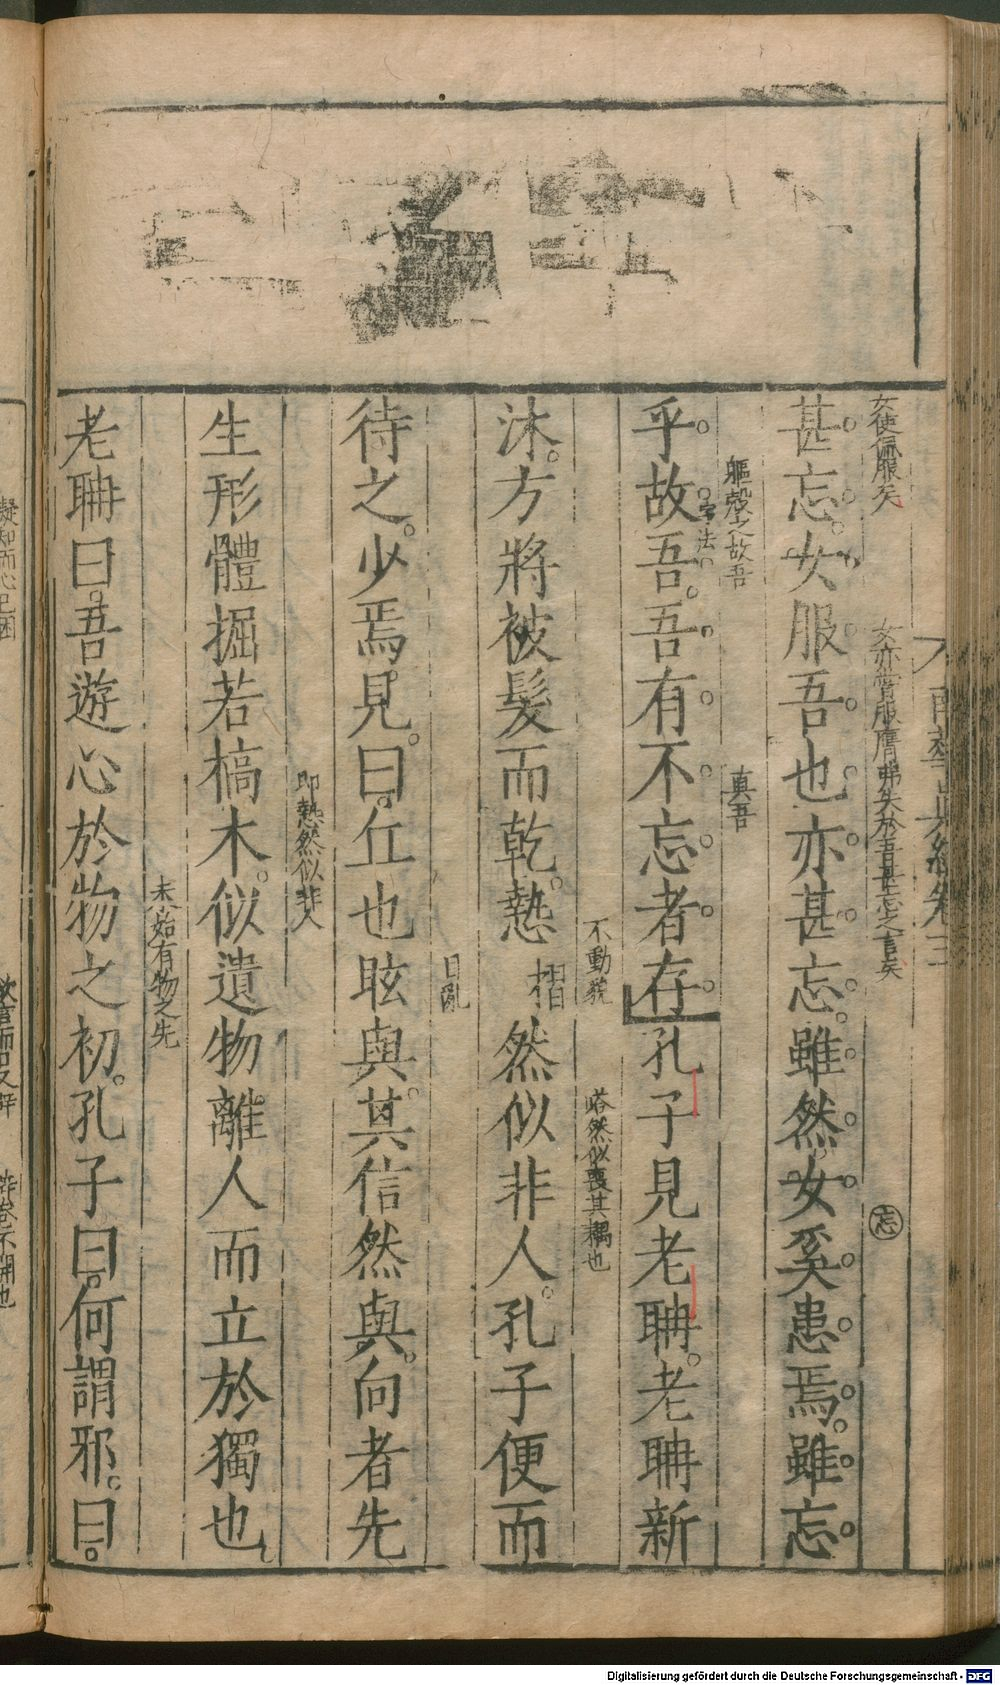 南華真經卷三
女使佩服矣
女亦當服膺弗失於吾甚忘之言矣
忘
甚忘。女服吾也亦甚忘。雖然。女奚患焉。雖忘
軀殼之故吾
字法
真吾
乎故吾。吾有不忘者存孔子見老聃。老聃新
不動貌
嗒然似喪其耦也
沐。方將被髮而乾。慹
摺
然似非人。孔子便而
目亂
待之。少焉見。曰。丘也眩與。其信然與。向者先
即慹然似非人
生形體掘若槁木。似遺物離人而立於獨也
未始有物之先
老聃曰。吾遊心於物之初。孔子曰。何謂邪。曰。
Digitalisierung gefördert durch die Deutsche Forschungsgemeinschaft - DFG